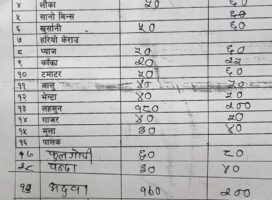 ४ लौका ५० ६०
५ सानो बिन्स ६०
६ खुर्सानी ८० ६०
७ हरियो केराउ
८ प्याज ५० ६०
९ काँक्रा २०
१० टमाटर ५० ६०
११ आलु
१२ भेन्टा ४० ५०
१३ लहसुन १८० २००
१४ गाजर ४० ५०
१५ मुला ३० ४०
१६ पालक
१७ फुलगोपी ६० ८०
१८ ३० ४०
१९ अदुवा १६० २००